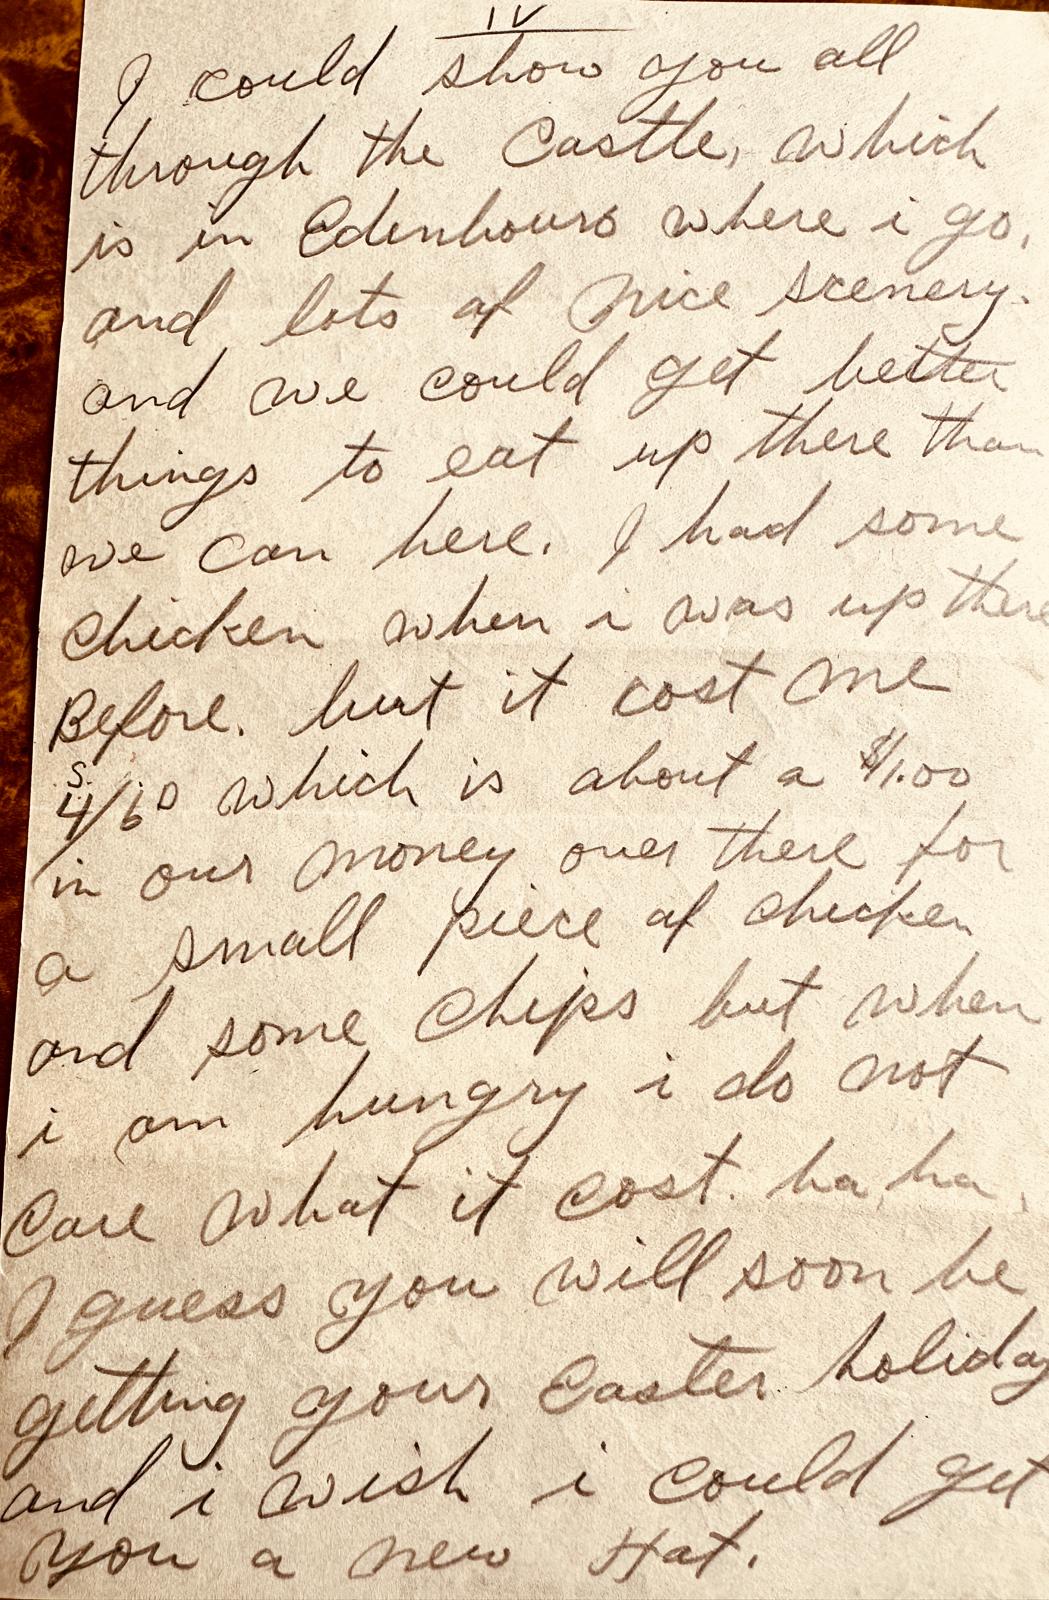 IV
I could show you all
through the Castle, which
is in Edenbouro where i go.
and lots of nice scenery.
and we could get better
things to eat up there than
we can here. I had some
chicken when i was up there
Before. but it cost me
4/6D which is about a $1.00
S.
in our money over there for
a small piece of chicken
and some chips but when
i am hungry i do not
Care what it cost. ha, ha,
I guess you will soon be
getting your Easter holiday
and i wish i could get
you a new Hat.